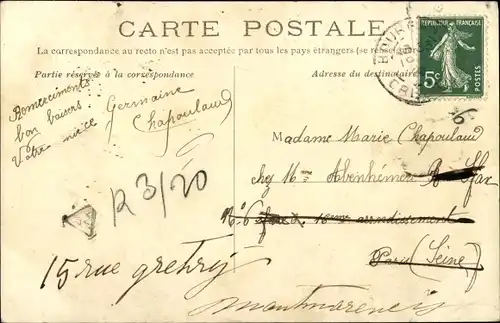 CARTE POSTALE
La correspondance au recto n'est pas acceptée par tous les pays étrangers (se
Partie réservée à la correspondance
Adresse du destinataire
RÉPUBLIQUE FRANÇAISE
5c
POSTES
Remerciments
bon baisers
Votre nièce Germaine
Chapoulaud
Madame Marie Chapoulaud
chez Mme
arrondissement
Paris (Seine)
R 3/20
15 rue gretry
montmorency